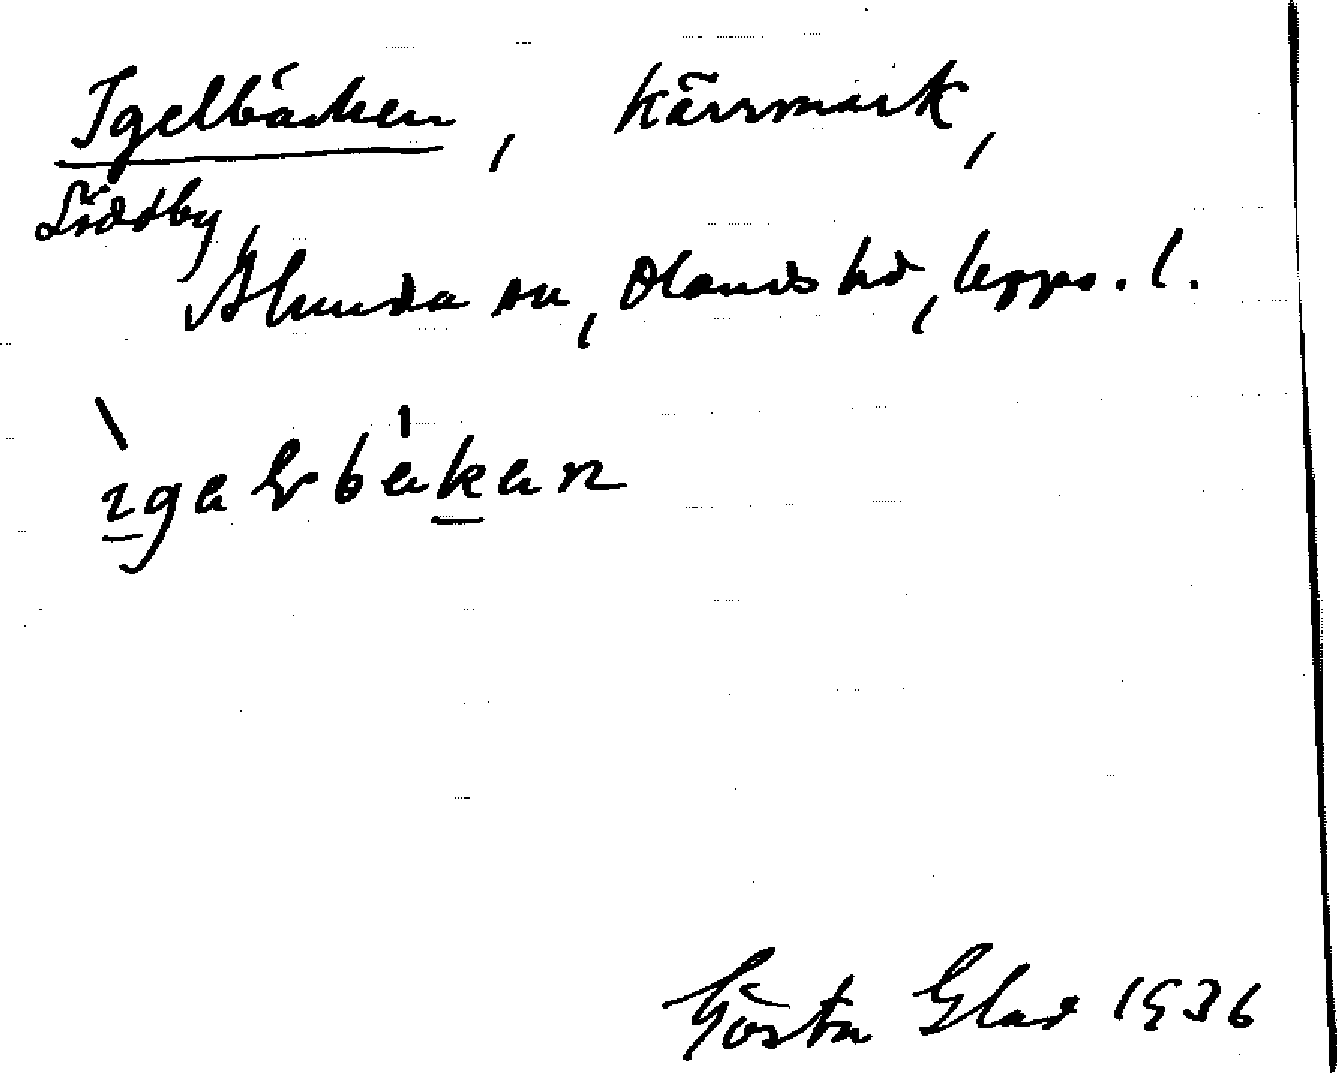 Igelbäcken, kärrmark,
Södöby,
Alunda sn, Olands hd, Upps. l.
ìgalbákan
Gösta Glad 1936